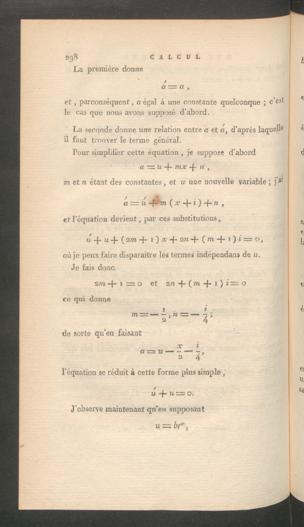 298 CALCUL
La première donne
á = a,
et, parconséquent, a égal à une constante quelconque ; c'est
le cas que nous avons supposé d'abord.
La seconde donne une relation entre a et á, d'après laquelle
il faut trouver le terme général.
Pour simplifier cette équation, je suppose d'abord
a = u + mx + n,
m et n étant des constantes, et u une nouvelle variable ; j'ai
á = ú + m (x + i) + n,
et l'équation devient, par ces substitutions,
ú + u + (2m + 1) x + 2n + (m + 1) i = 0,
où je peux faire disparaître les termes indépendans de u.
Je fais donc
2m + 1 = 0 et 2n + (m + 1) i = 0
ce qui donne
m = — 1/2, n = — i/4;
de sorte qu'en faisant
a = u — x/2 — i/4,
l'équation se réduit à cette forme plus simple,
ú + u = 0.
J'observe maintenant qu'en supposant
u = brˣ,